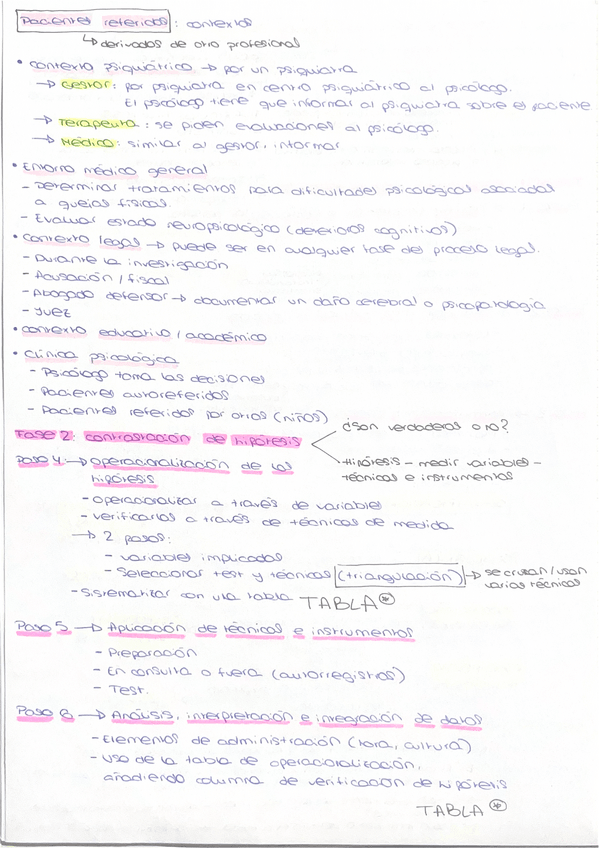 Pacientes referidos: contextos
↳ derivados de otro profesional
• Contexto psiquiátrico → por un psiquiatra
→ Gestor: por psiquiatra en centro psiquiátrico al psicólogo.
El psicólogo tiene que informar al psiquiatra sobre el paciente
→ Terapeuta: se piden evaluaciones al psicólogo.
→ Médico: similar al gestor, informar
• Entorno médico general
- Determinar tratamientos para dificultades psicológicas asociadas
a quejas físicas.
- Evaluar estado neuropsicológico (deterioros cognitivos)
• Contexto legal → puede ser en cualquier fase del proceso legal.
- Durante la investigación
- Acusación / fiscal
- Abogado defensor → documentar un daño cerebral o psicopatología
- Juez
• Contexto educativo / académico
• Clínica psicológica
- Psicólogo toma las decisiones
- Pacientes autoreferidos
- Pacientes referidos por otros (niños)
Fase 2: contrastación de hipótesis
¿Son verdaderas o no?
Hipótesis - medir variables -
técnicas e instrumentos
Paso 4 → Operacionalización de las
hipótesis
- Operacionalizar a través de variables
- Verificarlas a través de técnicas de medida
→ 2 pasos:
- Variables implicadas
- Seleccionar test y técnicas (triangulación) → se cruzan/usan
varias técnicas
- Sistematizar con una tabla TABLA *
Paso 5 → Aplicación de técnicas e instrumentos
- Preparación
- En consulta o fuera (autorregistros)
- Test.
Paso 6 → Análisis, interpretación e integración de datos
- Elementos de administración (hora, cultura)
- Uso de la tabla de operacionalización,
añadiendo columna de verificación de hipótesis
TABLA *